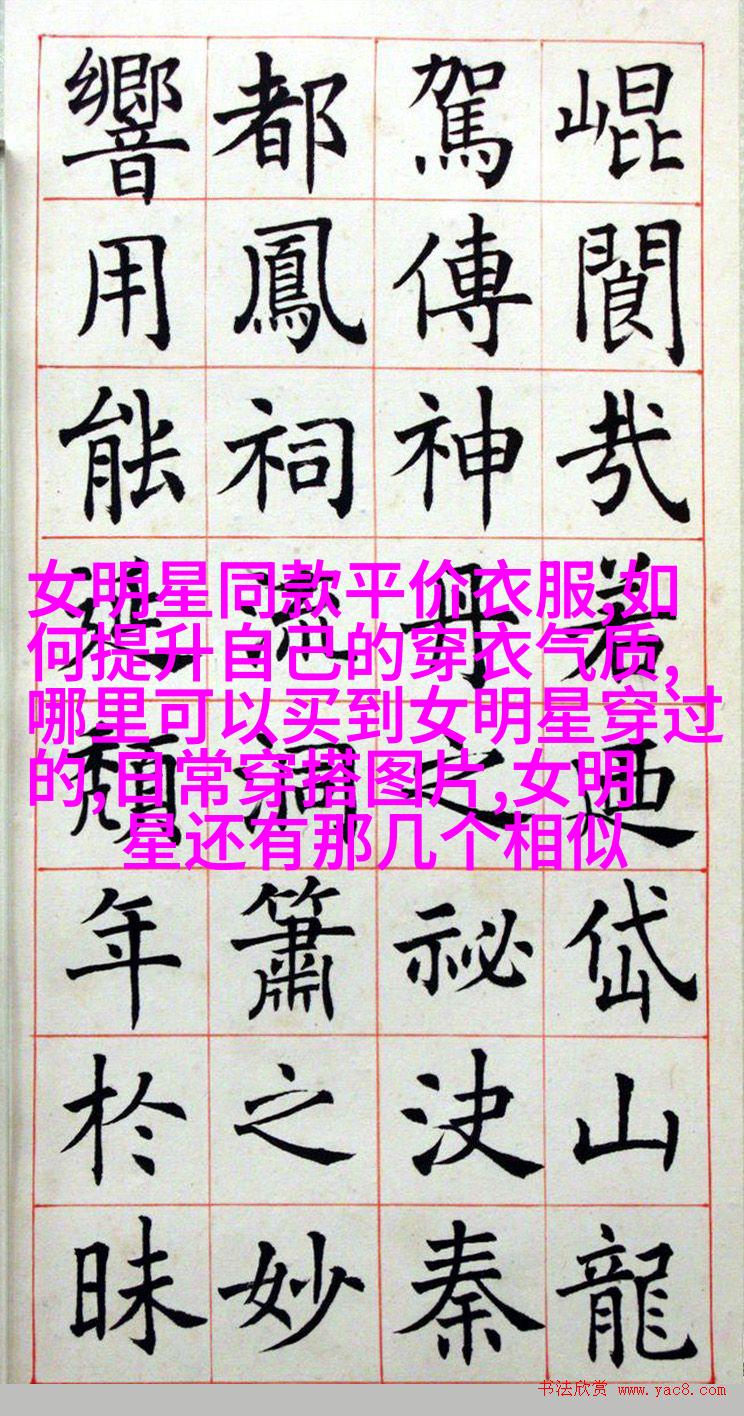 崐閬㢤若廼岱山龍
駕傳神丹之祕決秦
都鳳祠流洞簫之妙
響用能延頹年於昧
女明星同款平价衣服,如
何提升自己的穿衣气质,
哪里可以买到女明星穿过
的,日常穿搭图片,女明
星还有那几个相似
书法欣赏 www.yac8.com